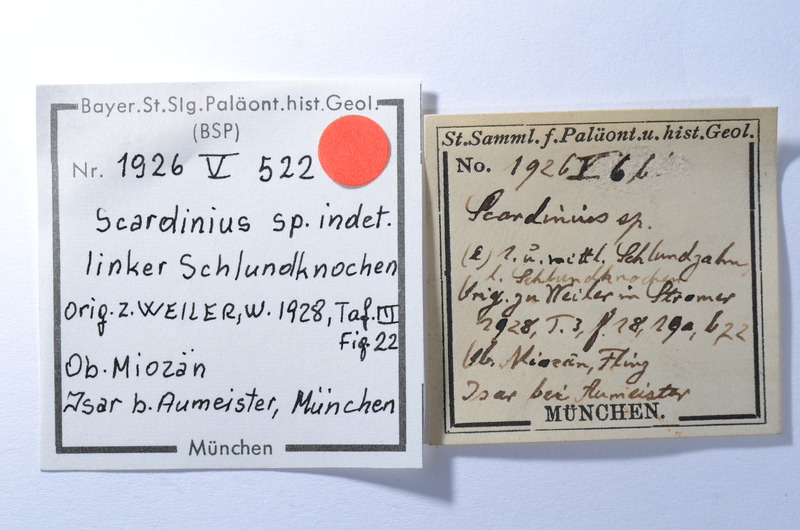 Bayer.St.Slg.Paläont.hist.Geol.
(BSP)
Nr. 1926 V 522
Scardinius sp. indet.
linker Schlundknochen
Orig. z. WEILER, W. 1928, Taf. III
Fig. 22
Ob. Miozän
Isar b. Aumeister, München
München
St. Samml. f. Paläont. u. hist. Geol.
No. 1926 V
Scardinius sp.
r. u. mittl. Schlundzahn,
l. Schlundknochen
Orig. zu Weiler in Stromer
1928, T. 3, f. 18, 19a, b 22
Ob. Miozän, Flinz
Isar bei Aumeister
MÜNCHEN.